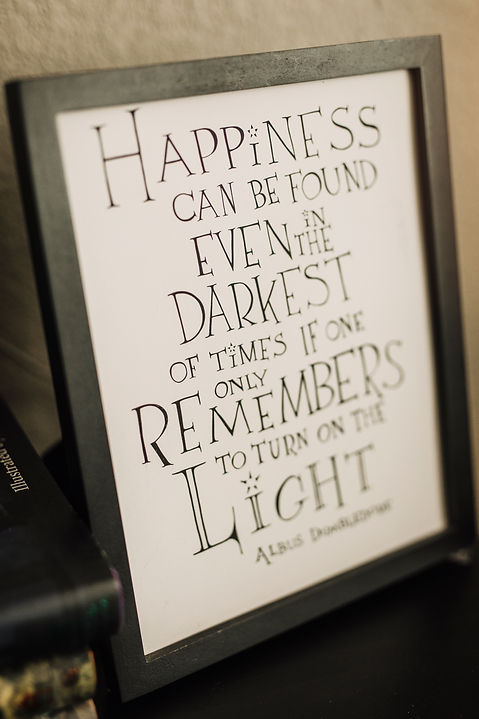 HAPPiNESS
CAN BE FOUND
EVEN iN THE
DARKEST
OF TiMES IF ONE
ONLY
REMEMBERS
TO TURN ON THE
LiGHT
ALBUS DUMBLEDORE
Illustrated